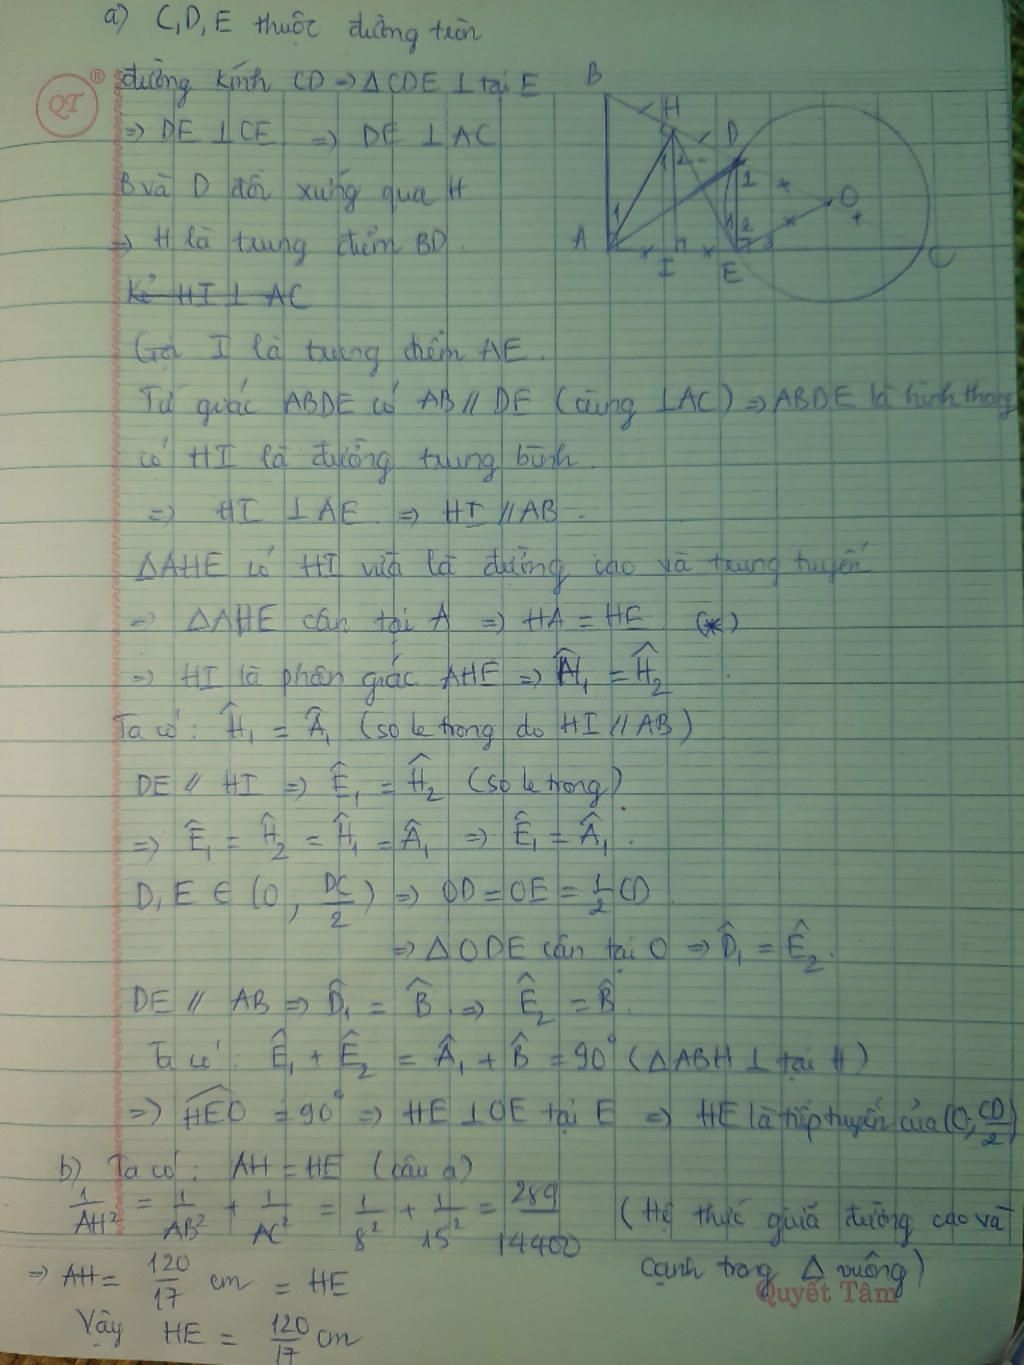 a) C, D, E thuộc đường tròn
đường kính CD => ΔCDE ⊥ tại E
QT ®
=> DE ⊥ CE => DE ⊥ AC
B và D đối xứng qua H
=> H là trung điểm BD.
Kẻ HI ⊥ AC
Gọi I là trung điểm AE.
Tứ giác ABDE có AB // DE (cùng ⊥ AC) => ABDE là hình thang
có HI là đường trung bình.
=> HI ⊥ AE => HI // AB.
ΔAHE có HI vừa là đường cao và trung tuyến
=> ΔAHE cân tại A => HA = HE (*)
=> HI là phân giác AHE => Ĥ₁ = Ĥ₂
Ta có: Ĥ₁ = Â₁ (so le trong do HI // AB)
DE // HI => Ê₁ = Ĥ₂ (so le trong)
=> Ê₁ = Ĥ₂ = Ĥ₁ = Â₁ => Ê₁ = Â₁.
D, E ∈ (O; DC/2) => OD = OE = 1/2 CD
=> ΔODE cân tại O => D̂₁ = Ê₂.
DE // AB => D̂₁ = B̂ => Ê₂ = B̂.
Ta có: Ê₁ + Ê₂ = Â₁ + B̂ = 90° (ΔABH ⊥ tại H)
=> HEO = 90° => HE ⊥ OE tại E => HE là tiếp tuyến của (O, CD/2)
b) Ta có: AH = HE (câu a)
1/AH² = 1/AB² + 1/AC² = 1/8² + 1/15² = 289/14400 (Hệ thức giữa đường cao và
cạnh trong Δ vuông)
=> AH = 120/17 cm = HE
Quyết Tâm
Vậy HE = 120/17 cm
B
H
D
1 2
1
O
1
1 2
3
A
I
E
C